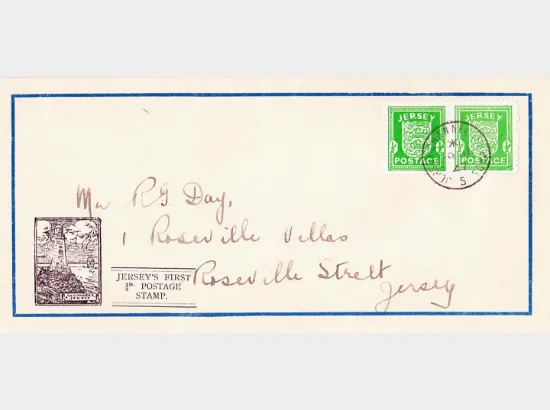 JERSEY JERSEY
POSTAGE POSTAGE
CHANNEL ISLANDS
5
Mr R.G. Day,
1 Roseville Villas
Roseville Street
Jersey
JERSEY'S FIRST
½D. POSTAGE
STAMP.